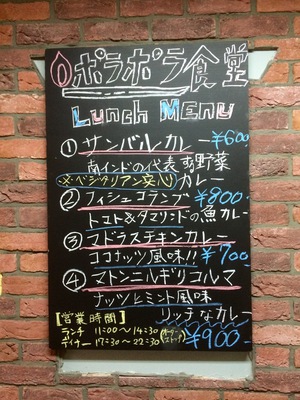 ポラポラ食堂
Lunch Menu
① サンバルカレー ¥600
南インドの代表的野菜
※ベジタリアン安心 カレー
② フィッシュコランブ ¥800
トマト&タマリンドの魚カレー
③ マドラスチキンカレー
ココナッツ風味!! ¥700
④ マトンニルギリコルマ
ナッツとミント風味
リッチなカレー
【営業時間】
ランチ 11:00〜14:30
ディナー 17:30〜22:30
¥900